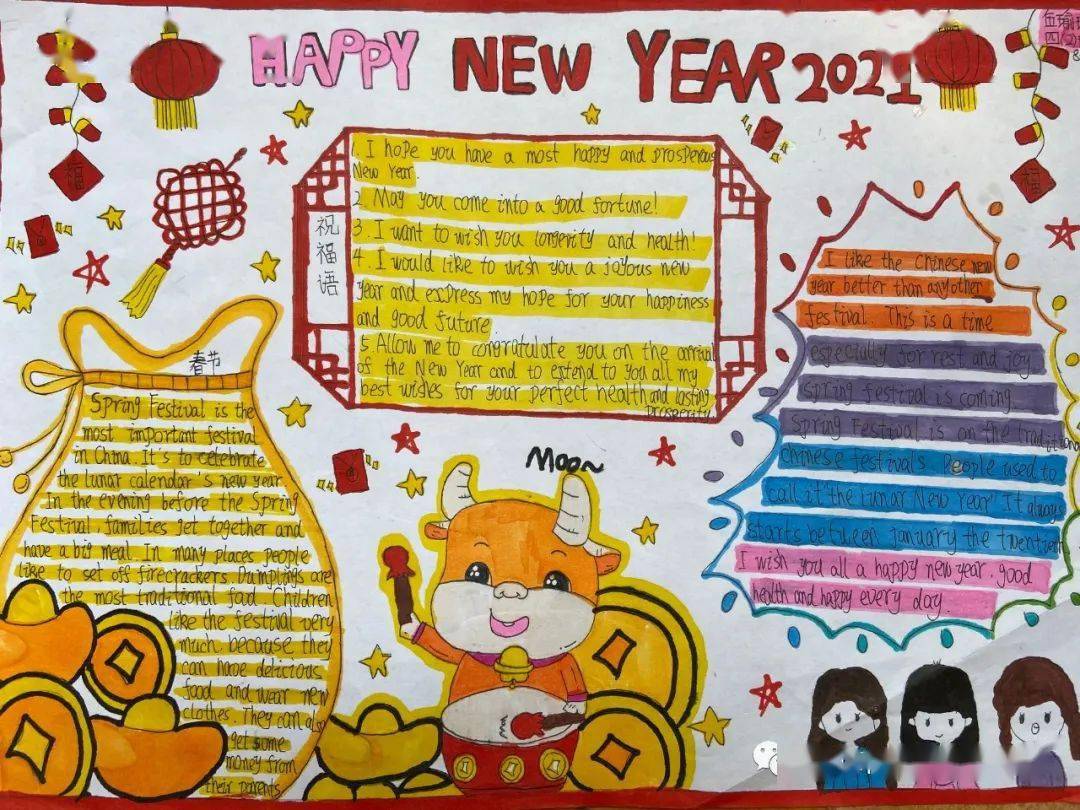 HAPPY NEW YEAR 2021
福
福
1. I hope you have a most happy and prosperous
New Year.
2. May you come into a good fortune!
3. I want to wish you longevity and health!
4. I would like to wish you a joyous new
year and express my hope for your happiness
and good future.
5. Allow me to congratulate you on the arrival
of the New Year and to extend to you all my
best wishes for your perfect health and lasting
prosperity
祝
福
语
春节
Spring Festival is the
most important festival
in China. It's to celebrate
the lunar calendar's new year
In the evening before the Spring
Festival, families get together and
have a big meal. In many places people
like to set off firecrackers. Dumplings are
the most traditional food. Children
like the festival very
much, because they
can have delicious
food and wear new
clothes. They can also
get some
money from
their parents
Moo~
I like the Chinese new
year better than any other
festival. This is a time
especially for rest and joy.
Spring festival is coming.
Spring Festival is on the traditional
Chinese festivals. People used to
call it "the Lunar New Year" It always
starts between January the twentieth
I wish you all a happy new year. good
health and happy every day.